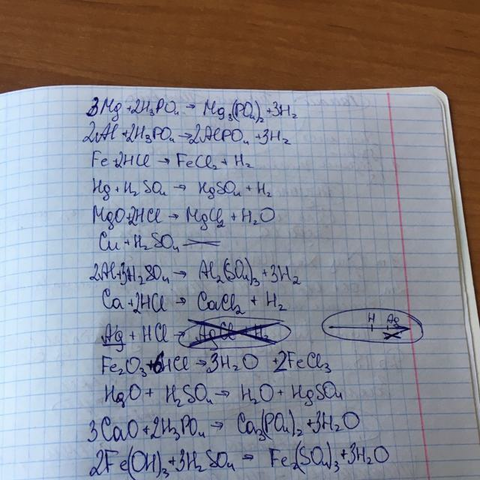 3Mg + 2H₃PO₄ → Mg₃(PO₄)₂ + 3H₂
2Al + 2H₃PO₄ → 2AlPO₄ + 3H₂
Fe + 2HCl → FeCl₂ + H₂
Hg + H₂SO₄ → HgSO₄ + H₂
MgO + 2HCl → MgCl₂ + H₂O
Cu + H₂SO₄
2Al + 3H₂SO₄ → Al₂(SO₄)₃ + 3H₂
Ca + 2HCl → CaCl₂ + H₂
Ag + HCl → AgCl H H Ag
Fe₂O₃ + 6HCl → 3H₂O 2FeCl₃
HgO + H₂SO₄ → H₂O + HgSO₄
3CaO + 2H₃PO₄ → Ca₃(PO₄)₂ + 3H₂O
2Fe(OH)₃ + 3H₂SO₄ = Fe₂(SO₄)₃ + 3H₂O